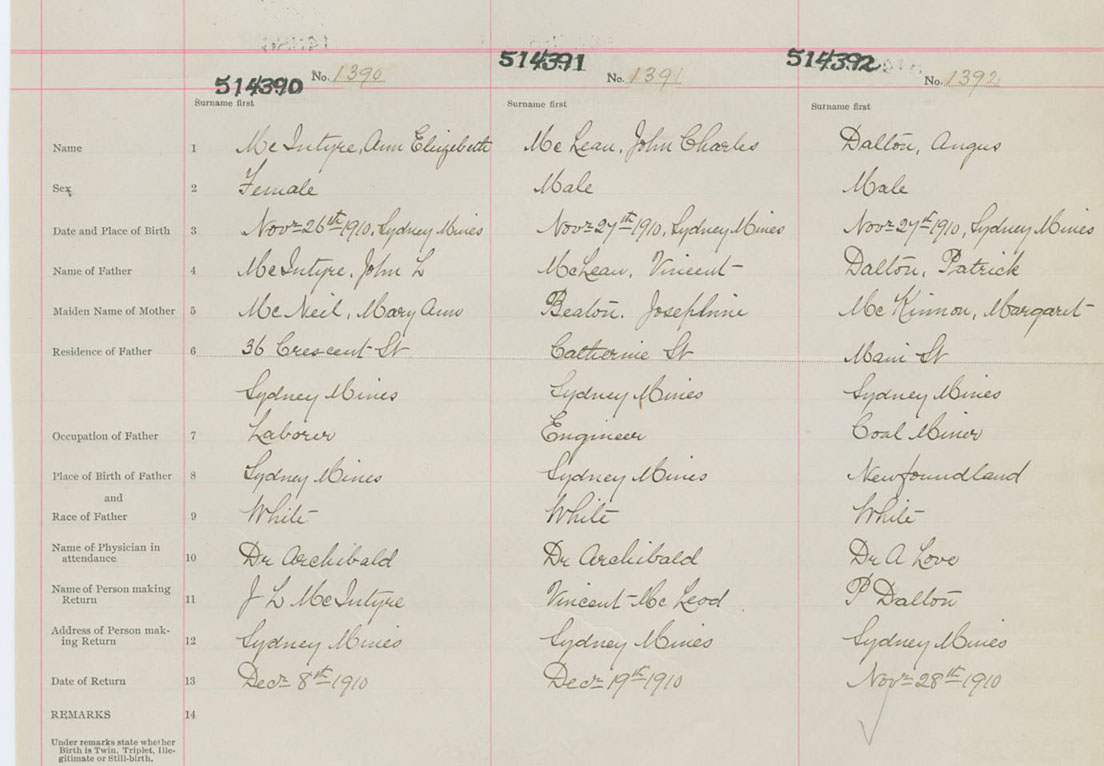 514390 No. 1390 514391 No. 1391 514392 No. 1392
Surname first Surname first Surname first
Name 1 McIntyre, Ann Elizebeth McLean, John Charles Dalton, Angus
Sex 2 Female Male Male
Date and Place of Birth 3 Novr 26th 1910, Sydney Mines Novr 27th 1910, Sydney Mines Novr 27th 1910, Sydney Mines
Name of Father 4 McIntyre, John L McLean, Vincent Dalton, Patrick
Maiden Name of Mother 5 McNeil, Mary Ann Beaton, Josephine McKinnon, Margaret
Residence of Father 6 36 Crescent St Catherine St Main St
Sydney Mines Sydney Mines Sydney Mines
Occupation of Father 7 Laborer Engineer Coal Miner
Place of Birth of Father 8 Sydney Mines Sydney Mines Newfoundland
and
Race of Father 9 White White White
Name of Physician in
attendance 10 Dr Archibald Dr Archibald Dr A Love
Name of Person making
Return 11 J L McIntyre Vincent McLeod P Dalton
Address of Person mak-
ing Return 12 Sydney Mines Sydney Mines Sydney Mines
Date of Return 13 Decr 8th 1910 Decr 19th 1910 Novr 28th 1910
REMARKS 14
Under remarks state whether
Birth is Twin, Triplet, Ille-
gitimate or Still-birth.